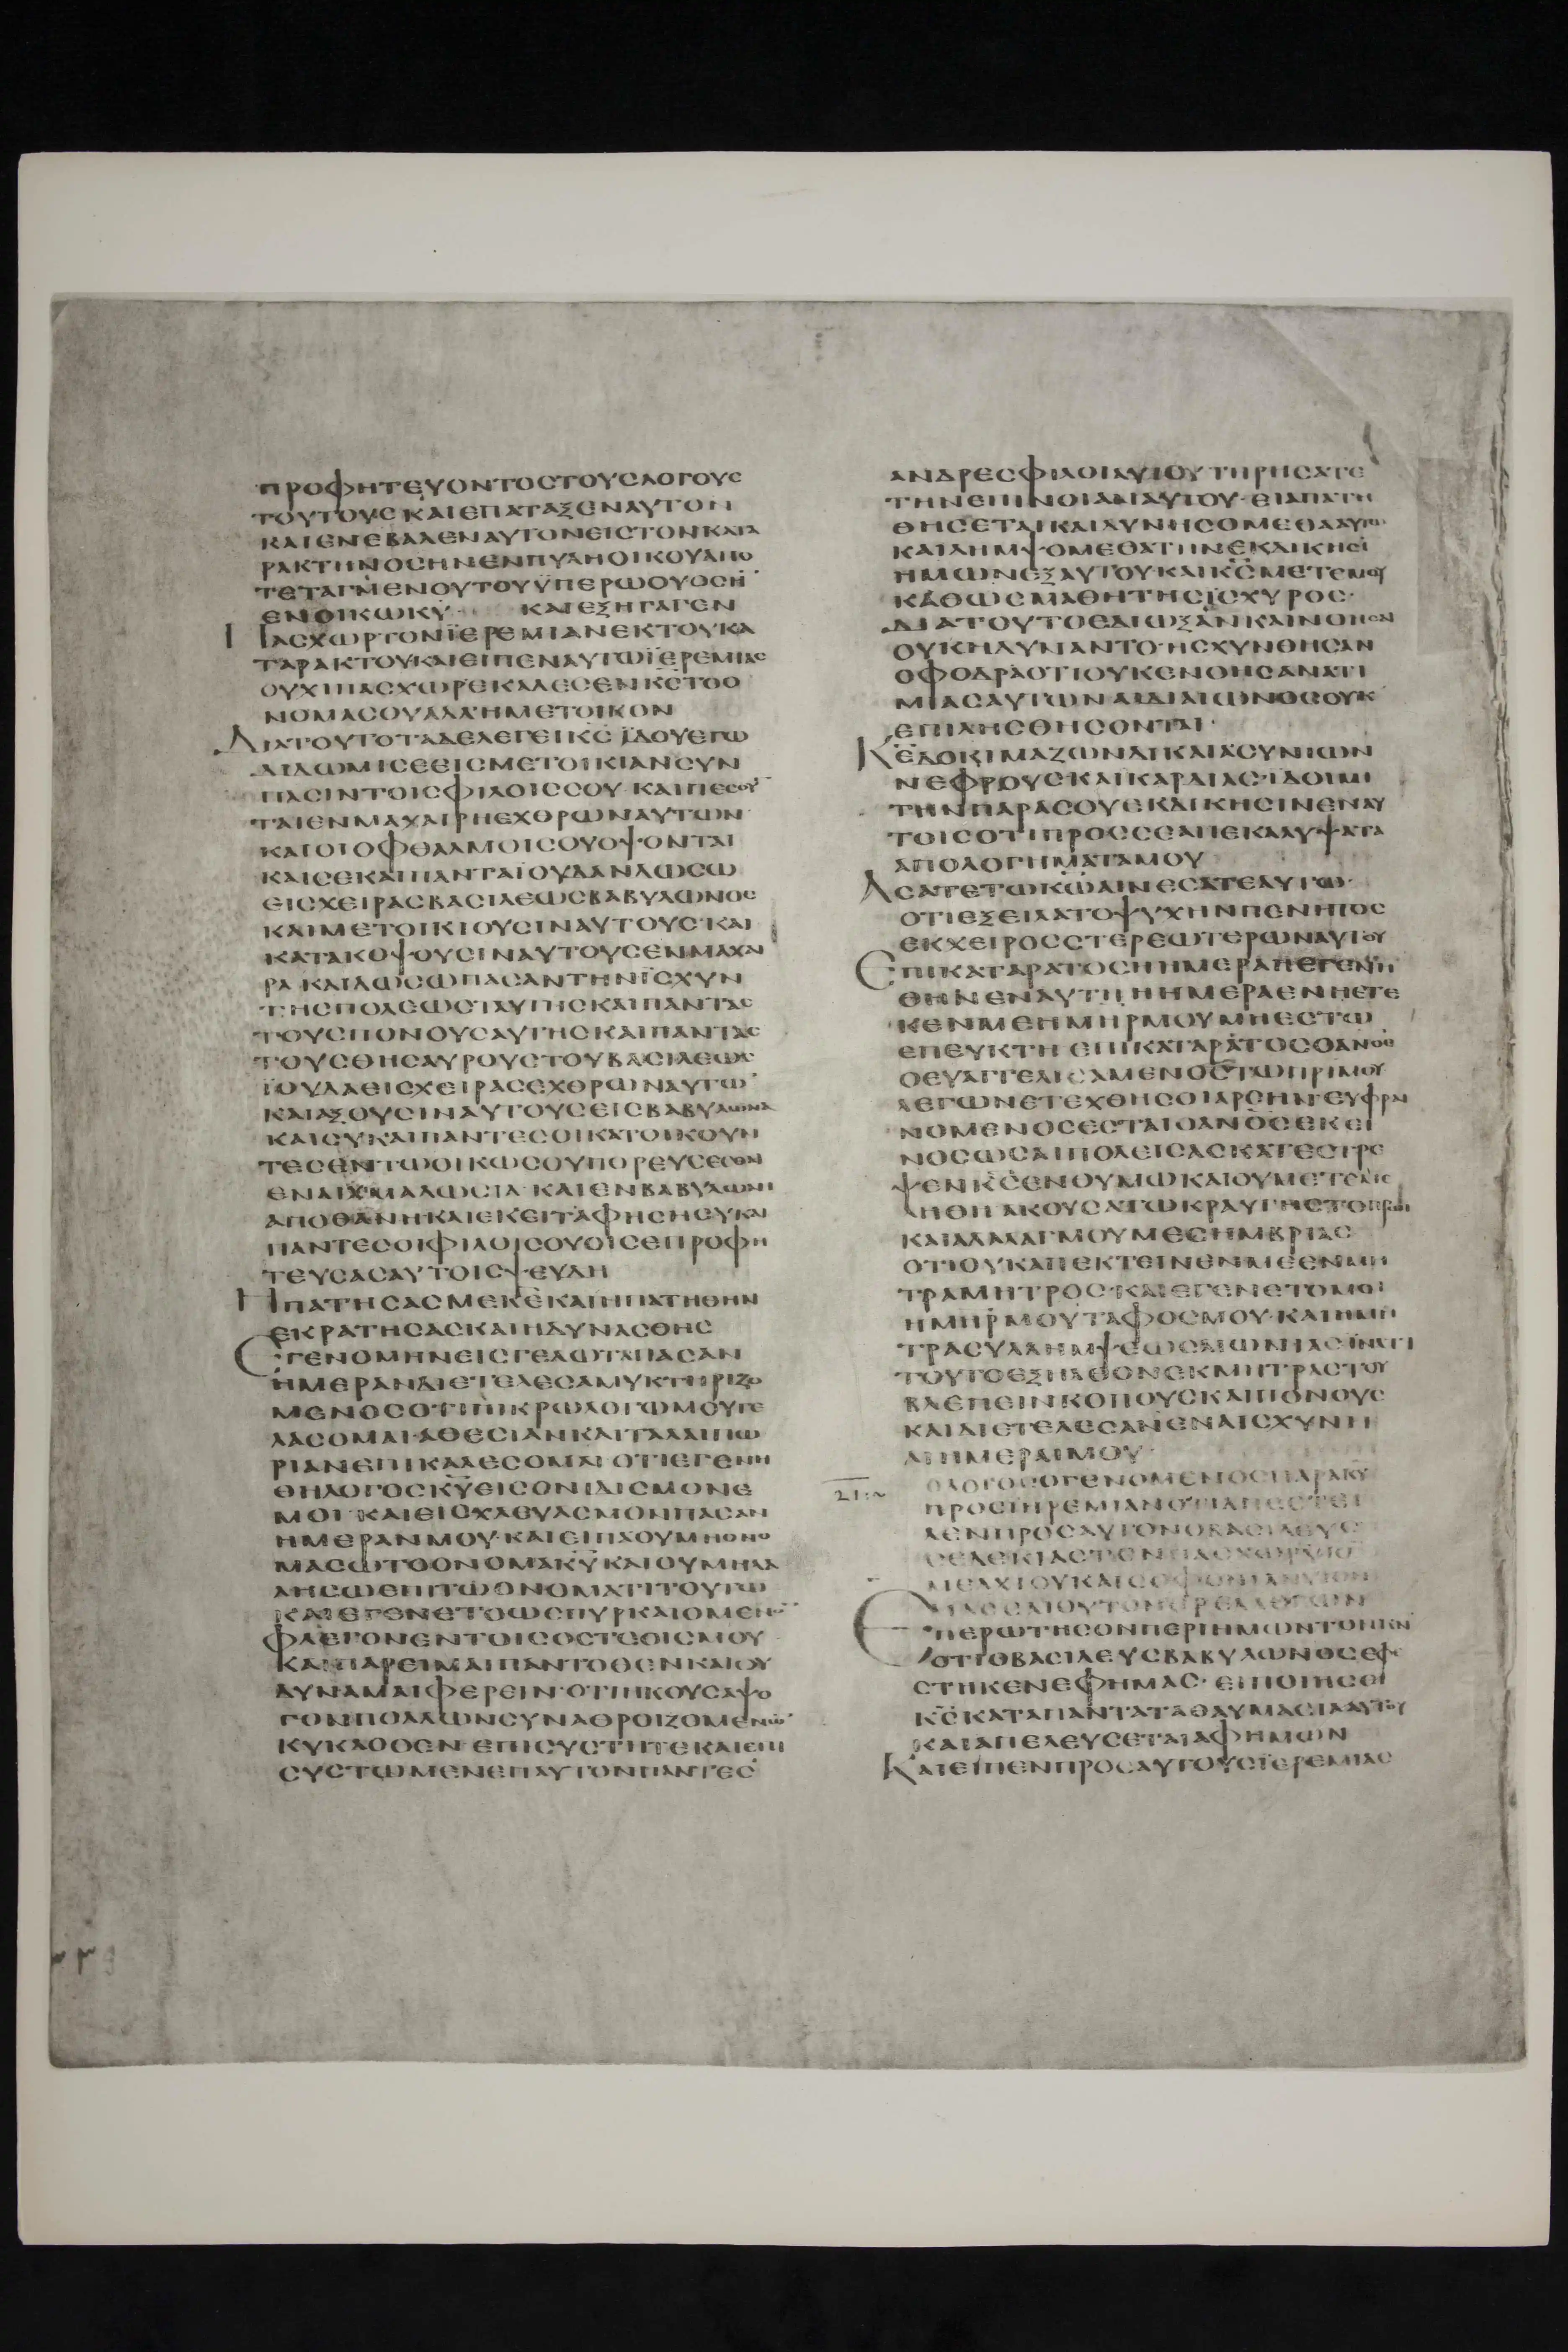 ΠΡΟΦΗΤΕΥΟΝΤΟΣΤΟΥΣΛΟΓΟΥΣ
ΤΟΥΤΟΥΣ ΚΑΙΕΠΑΤΑΞΕΝΑΥΤΟΝ
ΚΑΙΕΝΕΒΑΛΕΝΑΥΤΟΝΕΙΣΤΟΝΚΑΤΑ
ΡΑΚΤΗΝΟΣΗΝΕΝΠΥΛΗΟΙΚΟΥΑΠΟ
ΤΕΤΑΓΜΕΝΟΥΤΟΥΫΠΕΡΩΟΥΟΣΗ
ΕΝΟΙΚΩΚΥ ΚΑΙΕΞΗΓΑΓΕΝ
ΠΑΣΧΩΡΤΟΝΪΕΡΕΜΙΑΝΕΚΤΟΥΚΑ
ΤΑΡΑΚΤΟΥΚΑΙΕΙΠΕΝΑΥΤΩΪΕΡΕΜΙΑΣ
ΟΥΧΙΠΑΣΧΩΡΕΚΑΛΕΣΕΝΚΣΤΟΟ
ΝΟΜΑΣΟΥΑΛΛΗΜΕΤΟΙΚΟΝ
ΔΙΑΤΟΥΤΟΤΑΔΕΛΕΓΕΙΚΣ ΪΔΟΥΕΓΩ
ΔΙΔΩΜΙΣΕΕΙΣΜΕΤΟΙΚΙΑΝΣΥΝ
ΠΑΣΙΝΤΟΙΣΦΙΛΟΙΣΣΟΥ ΚΑΙΠΕΣΟΥ
ΤΑΙΕΝΜΑΧΑΙΡΗΕΧΘΡΩΝΑΥΤΩΝ
ΚΑΙΟΙΟΦΘΑΛΜΟΙΣΟΥΟΨΟΝΤΑΙ
ΚΑΙΣΕΚΑΙΠΑΝΤΑΪΟΥΔΑΝΔΩΣΩ
ΕΙΣΧΕΙΡΑΣΒΑΣΙΛΕΩΣΒΑΒΥΛΩΝΟΣ
ΚΑΙΜΕΤΟΙΚΙΟΥΣΙΝΑΥΤΟΥΣ·ΚΑΙ
ΚΑΤΑΚΟΨΟΥΣΙΝΑΥΤΟΥΣΕΝΜΑΧΑΙ
ΡΑ ΚΑΙΔΩΣΩΠΑΣΑΝΤΗΝΪΣΧΥΝ
ΤΗΣΠΟΛΕΩΣΤΑΥΤΗΣΚΑΙΠΑΝΤΑΣ
ΤΟΥΣΠΟΝΟΥΣΑΥΤΗΣΚΑΙΠΑΝΤΑΣ
ΤΟΥΣΘΗΣΑΥΡΟΥΣΤΟΥΒΑΣΙΛΕΩΣ
ΪΟΥΔΑΕΙΣΧΕΙΡΑΣΕΧΘΡΩΝΑΥΤΩ
ΚΑΙΑΞΟΥΣΙΝΑΥΤΟΥΣΕΙΣΒΑΒΥΛΩΝΑ
ΚΑΙΣΥΚΑΙΠΑΝΤΕΣΟΙΚΑΤΟΙΚΟΥΝ
ΤΕΣΕΝΤΩΟΙΚΩΣΟΥΠΟΡΕΥΣΕΣΘΑΙ
ΕΝΑΙΧΜΑΛΩΣΙΑ·ΚΑΙΕΝΒΑΒΥΛΩΝΙ
ΑΠΟΘΑΝΗΚΑΙΕΚΕΙΤΑΦΗΣΗΣΥΚΑΙ
ΠΑΝΤΕΣΟΙΦΙΛΟΙΣΟΥΟΙΣΕΠΡΟΦΗ
ΤΕΥΣΑΣΑΥΤΟΙΣΨΕΥΔΗ
ΗΠΑΤΗΣΑΣΜΕΚΕΚΑΙΗΠΑΤΗΘΗΝ
ΕΚΡΑΤΗΣΑΣΚΑΙΗΔΥΝΑΣΘΗΣ
ΕΓΕΝΟΜΗΝΕΙΣΓΕΛΩΤΑΠΑΣΑΝ
ΗΜΕΡΑΝΔΙΕΤΕΛΕΣΑΜΥΚΤΗΡΙΖΟ
ΜΕΝΟΣΟΤΙΠΙΚΡΩΛΟΓΩΜΟΥΓΕ
ΛΑΣΟΜΑΙ·ΑΘΕΣΙΑΝΚΑΙΤΑΛΑΙΠΩ
ΡΙΑΝΕΠΙΚΑΛΕΣΟΜΑΙ ΟΤΙΕΓΕΝΗ
ΘΗΛΟΓΟΣΚΥΕΙΣΟΝΙΔΙΣΜΟΝΕ
ΜΟΙ ΚΑΙΕΙΣΧΛΕΥΑΣΜΟΝΠΑΣΑΝ
ΗΜΕΡΑΝΜΟΥ·ΚΑΙΕΙΠΑΟΥΜΗΟΝΟ
ΜΑΣΩΤΟΟΝΟΜΑΚΥΚΑΙΟΥΜΗΛΑ
ΛΗΣΩΕΠΙΤΩΟΝΟΜΑΤΙΤΟΥΤΩ
ΚΑΙΕΓΕΝΕΤΟΩΣΠΥΡΚΑΙΟΜΕΝ
ΦΛΕΓΟΝΕΝΤΟΙΣΟΣΤΕΟΙΣΜΟΥ
ΚΑΙΠΑΡΕΙΜΑΙΠΑΝΤΟΘΕΝΚΑΙΟΥ
ΔΥΝΑΜΑΙΦΕΡΕΙΝ·ΟΤΙΗΚΟΥΣΑΨΟ
ΓΟΝΠΟΛΛΩΝΣΥΝΑΘΡΟΙΖΟΜΕΝΩ
ΚΥΚΛΟΘΕΝ ΕΠΙΣΥΣΤΗΤΕΚΑΙΕΠΙ
ΣΥΣΤΩΜΕΝΕΠΑΥΤΟΝΠΑΝΤΕΣ
ΑΝΔΡΕΣΦΙΛΟΙΑΥΤΟΥΤΗΡΗΣΑΤΕ
ΤΗΝΕΠΙΝΟΙΑΝΑΥΤΟΥ·ΕΙΑΠΑΤΗ
ΘΗΣΕΤΑΙΚΑΙΔΥΝΗΣΟΜΕΘΑΑΥΤΩ
ΚΑΙΛΗΜΨΟΜΕΘΑΤΗΝΕΚΔΙΚΗΣΙ
ΗΜΩΝΕΞΑΥΤΟΥ·ΚΑΙΚΣΜΕΤΕΜΟΥ
ΚΑΘΩΣΜΑΧΗΤΗΣΪΣΧΥΡΟΣ·
ΔΙΑΤΟΥΤΟΕΔΙΩΞΑΝΚΑΙΝΟΗΣΑΙ
ΟΥΚΗΔΥΝΑΝΤΟ·ΗΣΧΥΝΘΗΣΑΝ
ΣΦΟΔΡΑΟΤΙΟΥΚΕΝΟΗΣΑΝΑΤΙ
ΜΙΑΣΑΥΤΩΝΑΙΔΙΑΙΩΝΟΣΟΥΚ
ΕΠΙΛΗΣΘΗΣΟΝΤΑΙ·
ΚΕΔΟΚΙΜΑΖΩΝΔΙΚΑΙΑΣΥΝΙΩΝ
ΝΕΦΡΟΥΣΚΑΙΚΑΡΔΙΑΣ·ΙΔΟΙΜΙ
ΤΗΝΠΑΡΑΣΟΥΕΚΔΙΚΗΣΙΝΕΝΑΥ
ΤΟΙΣΟΤΙΠΡΟΣΣΕΑΠΕΚΑΛΥΨΑΤΑ
ΑΠΟΛΟΓΗΜΑΤΑΜΟΥ
ΑΣΑΤΕΤΩΚΩΑΙΝΕΣΑΤΕΑΥΤΩ·
ΟΤΙΕΞΕΙΛΑΤΟΨΥΧΗΝΠΕΝΗΤΟΣ
ΕΚΧΕΙΡΟΣΣΤΕΡΕΩΤΕΡΩΝΑΥΤΟΥ
ΕΠΙΚΑΤΑΡΑΤΟΣΗΗΜΕΡΑΗΕΓΕΝΗ
ΘΗΝΕΝΑΥΤΗ ΗΗΜΕΡΑΕΝΗΕΤΕ
ΚΕΝΜΕΗΜΗΡΜΟΥΜΗΕΣΤΩ
ΕΠΕΥΚΤΗ ΕΠΙΚΑΤΑΡΑΤΟΣΟΑΝΟΣ
ΟΕΥΑΓΓΕΛΙΣΑΜΕΝΟΣΤΩΠΡΙΜΟΥ
ΛΕΓΩΝΕΤΕΧΘΗΣΟΙΑΡΣΗΝ·ΕΥΦΡΑΙ
ΝΟΜΕΝΟΣΕΣΤΑΙΟΑΝΟΣΕΚΕΙ
ΝΟΣΩΣΑΙΠΟΛΕΙΣΑΣΚΑΤΕΣΤΡΕ
ΨΕΝΚΣΕΝΘΥΜΩΚΑΙΟΥΜΕΤΕΜΕ
ΛΗΘΗ ΑΚΟΥΣΑΤΩΚΡΑΥΓΗΣΤΟΠΡΩΙ
ΚΑΙΑΛΑΛΑΓΜΟΥΜΕΣΗΜΒΡΙΑΣ
ΟΤΙΟΥΚΑΠΕΚΤΕΙΝΕΝΜΕΕΝΜΗ
ΤΡΑΜΗΤΡΟΣ·ΚΑΙΕΓΕΝΕΤΟΜΟΙ
ΗΜΗΡΜΟΥΤΑΦΟΣΜΟΥ·ΚΑΙΗΜΗ
ΤΡΑΣΥΛΛΗΜΨΕΩΣΑΙΩΝΙΑΣΪΝΑΤΙ
ΤΟΥΤΟΕΞΗΛΘΟΝΕΚΜΗΤΡΑΣΤΟΥ
ΒΛΕΠΕΙΝΚΟΠΟΥΣΚΑΙΠΟΝΟΥΣ
ΚΑΙΔΙΕΤΕΛΕΣΑΝΕΝΑΙΣΧΥΝΗ
ΑΙΗΜΕΡΑΙΜΟΥ·
21
ΟΛΟΓΟΣΟΓΕΝΟΜΕΝΟΣΠΑΡΑΚΥ
ΠΡΟΣΪΗΡΕΜΙΑΝΟΤΙΑΠΕΣΤΕΙ
ΛΕΝΠΡΟΣΑΥΤΟΝΟΒΑΣΙΛΕΥΣ
ΕΠΕΡΩΤΗΣΟΝΠΕΡΙΗΜΩΝΤΟΝΚΝ
ΟΤΙΟΒΑΣΙΛΕΥΣΒΑΒΥΛΩΝΟΣΕΦΕ
ΣΤΗΚΕΝΕΦΗΜΑΣ· ΕΙΠΟΙΗΣΕΙ
ΚΣΚΑΤΑΠΑΝΤΑΤΑΘΑΥΜΑΣΙΑΑΥΤΟΥ
ΚΑΙΑΠΕΛΕΥΣΕΤΑΙΑΦΗΜΩΝ
ΚΑΙΕΙΠΕΝΠΡΟΣΑΥΤΟΥΣΪΕΡΕΜΙΑΣ